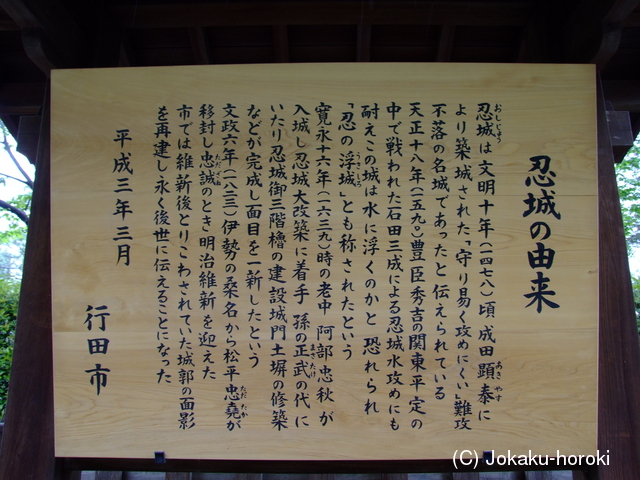 忍城の由来
忍城(おしじょう)は文明十年(一四七八)頃 成田顕泰(あきやす)に
より築城された「守り易く攻めにくい」難攻
不落の名城であったと伝えられている
天正十八年(一五九〇)豊臣秀吉の関東平定の
中で戦われた石田三成による忍城水攻めにも
耐えこの城は水に浮くのかと 恐れられ
「忍の浮城(うきしろ)」とも称されたという
寛永十六年(一六三九)時の老中 阿部忠秋が
入城し忍城大改築に着手 孫の正武(まさたけ)の代に
いたり忍城御三階櫓の建設城門土塀の修築
などが完成し面目を一新したという
文政六年(一八二三)伊勢の桑名から松平忠堯(ただたか)が
移封し忠誠(ただざね)のとき明治維新を迎えた
市では維新後とりこわされていた城郭の面影
を再建し永く後世に伝えることになった
平成三年三月
行田市
(C) Jokaku-horoki